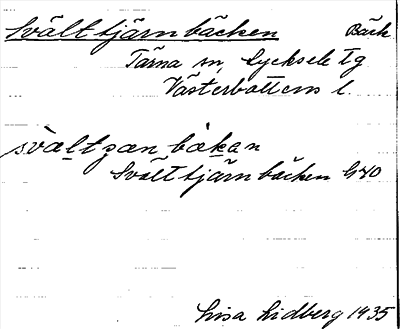 Svälttjärnbäcken Bäck
Tärna sn, Lycksele tg
Västerbottens l.
Svälttjärnbäcken
Lisa Lidberg 1935